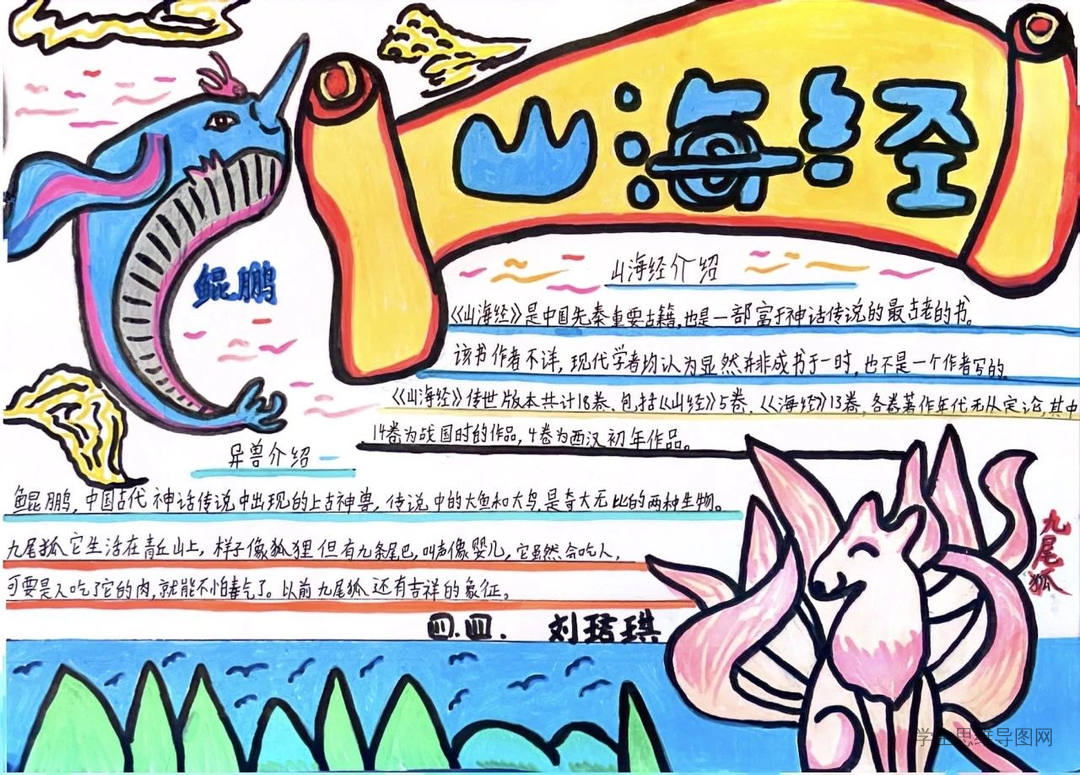 山海经
鲲鹏
山海经介绍
《山海经》是中国先秦重要古籍,也是一部富于神话传说的最古老的书。
该书作者不详,现代学者均认为显然并非成书于一时,也不是一个作者写的。
《山海经》传世版本共计18卷,包括《山经》5卷,《海经》13卷,各卷著作年代无从定论,其中
14卷为战国时的作品,4卷为西汉初年作品。
异兽介绍
鲲鹏,中国古代神话传说中出现的上古神兽,传说中的大鱼和大鸟,是奇大无比的两种生物。
九尾狐,它生活在青丘山上,样子像狐狸但有九条尾巴,叫声像婴儿,它虽然会吃人,
可要是人吃了它的肉,就能不怕毒气了。以前九尾狐还有吉祥的象征。
九尾狐
四.四. 刘琪
学生思维导图网